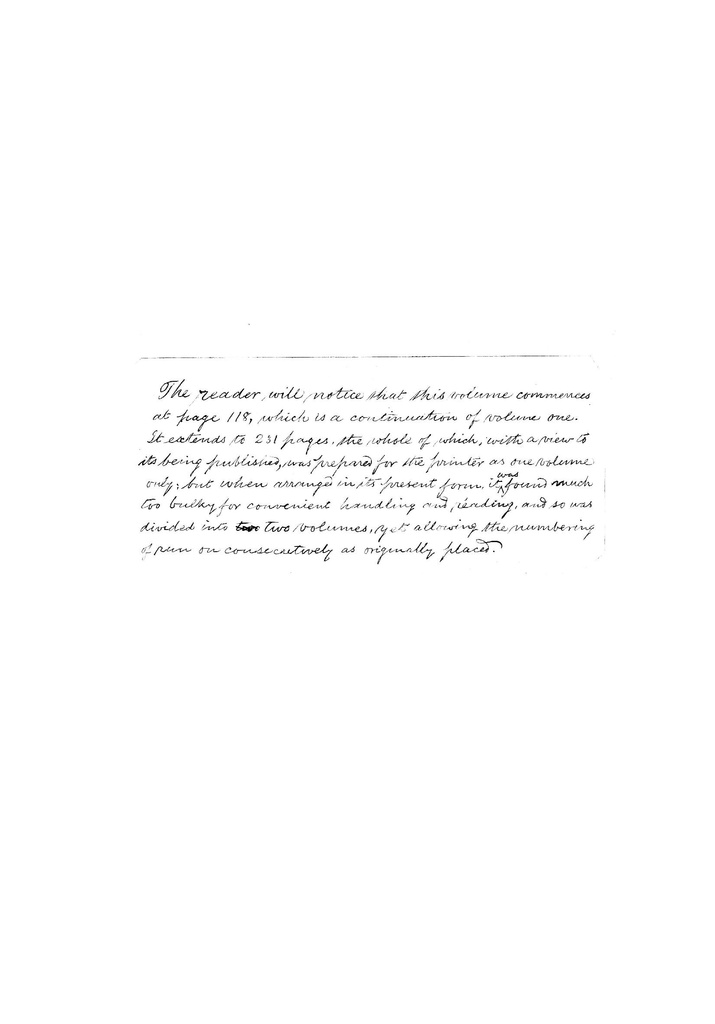 The reader, will, notice that this volume commences
at page 118, which is a continuation of volume one.
It extends to 231 pages, the whole of which, with a view to
its being published, was prepared for the printer as one volume
only; but when arranged in its present form, it was found much
too bulky for convenient handling and reading, and so was
divided into two two volumes, yet allowing the numbering
of run on consecutively as originally placed.